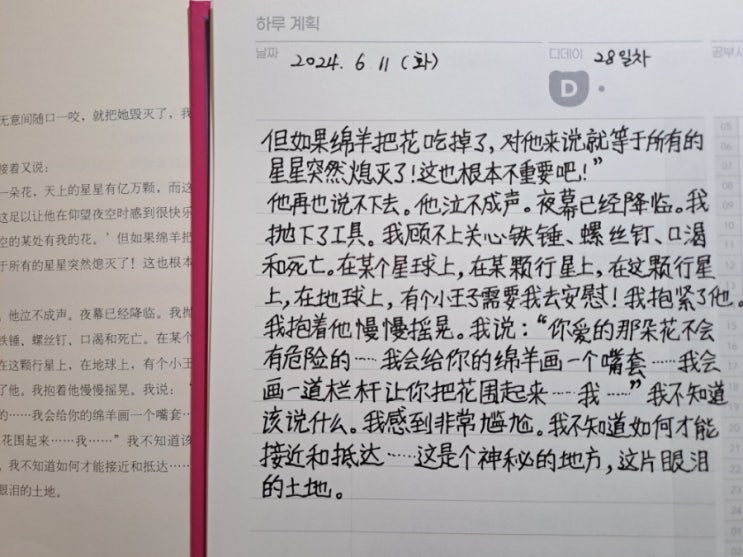 无意间随口一咬，就把她毁灭了，我
接着又说：
一朵花，天上的星星有亿万颗，而这
这足以让他在仰望夜空时感到很快乐
空的某处有我的花。’但如果绵羊把
于所有的星星突然熄灭了！这也根本
，他泣不成声。夜幕已经降临。我抛
铁锤、螺丝钉、口渴和死亡。在某个
在这颗行星上，在地球上，有个小王
了他。我抱着他慢慢摇晃。我说：“
的……我会给你的绵羊画一个嘴套…
花围起来……我……”我不知道该
，我不知道如何才能接近和抵达……
眼泪的土地。
하루 계획
날짜 2024. 6 11 (화)
디데이 28일차
공부시
D
但如果绵羊把花吃掉了，对他来说就等于所有的
星星突然熄灭了！这也根本不重要吧！”
他再也说不下去。他泣不成声。夜幕已经降临。我
抛下了工具。我顾不上关心铁锤、螺丝钉、口渴
和死亡。在某个星球上，在某颗行星上，在这颗行星
上，在地球上，有个小王子需要我去安慰！我抱紧了他。
我抱着他慢慢摇晃。我说：“你爱的那朵花不会
有危险的……我会给你的绵羊画一个嘴套……我会
画一道栏杆让你把花围起来……我……”我不知道
该说什么。我感到非常尴尬。我不知道如何才能
接近和抵达……这是个神秘的地方，这片眼泪
的土地。
05
06
07
08
09
10
11
12